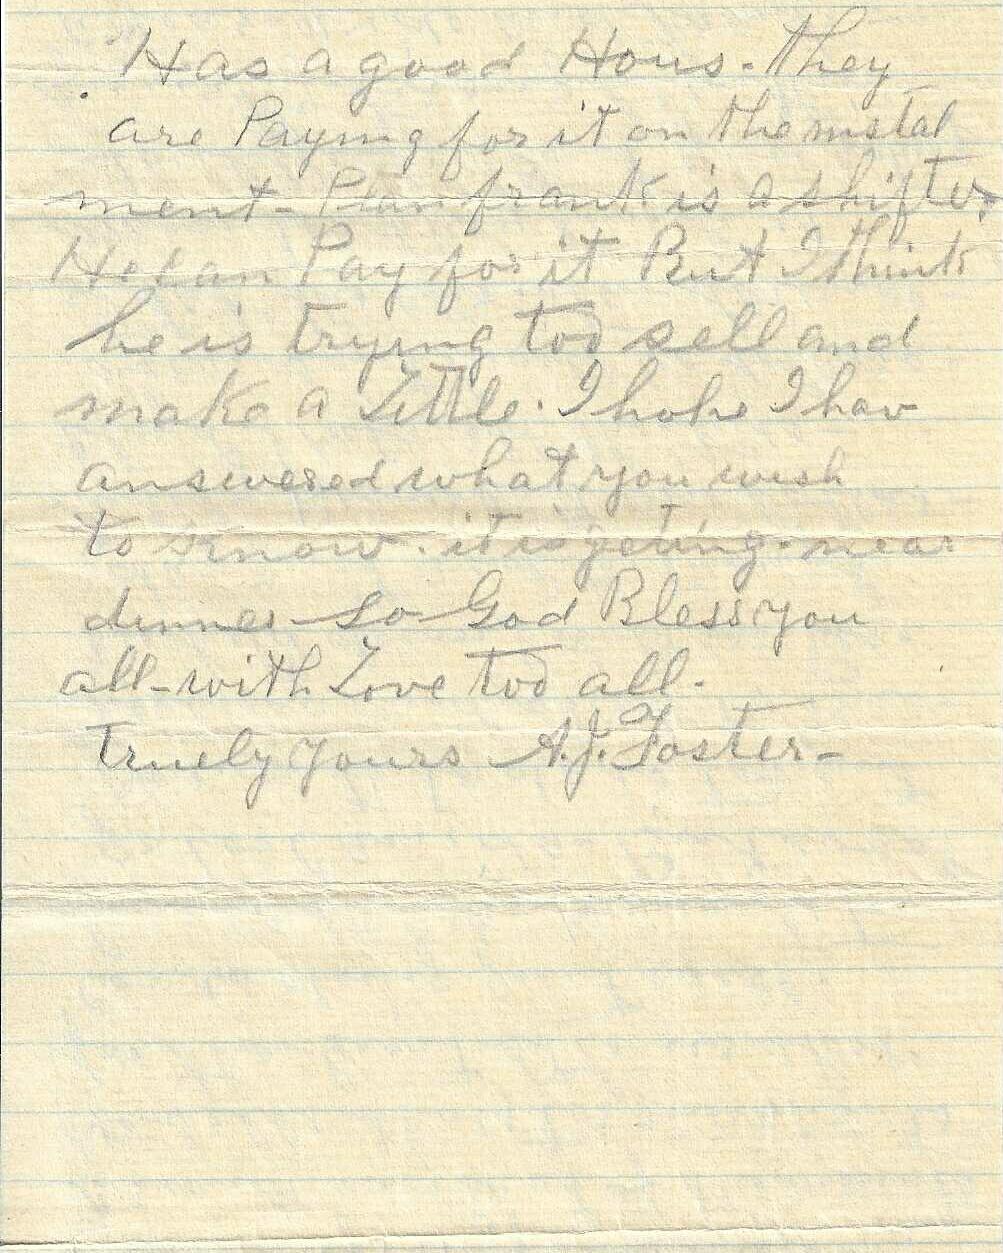 Has a good Hous. they
are Paying for it on the instal
ment - Plan frank is a shifter
He can Pay for it But I think
he is trying too sell and
make a Little. I hope I hav
answered what you wish
to know. it is geting near
dinner so God Bless you
all - with Love too all.
Truely yours A.J. Foster -